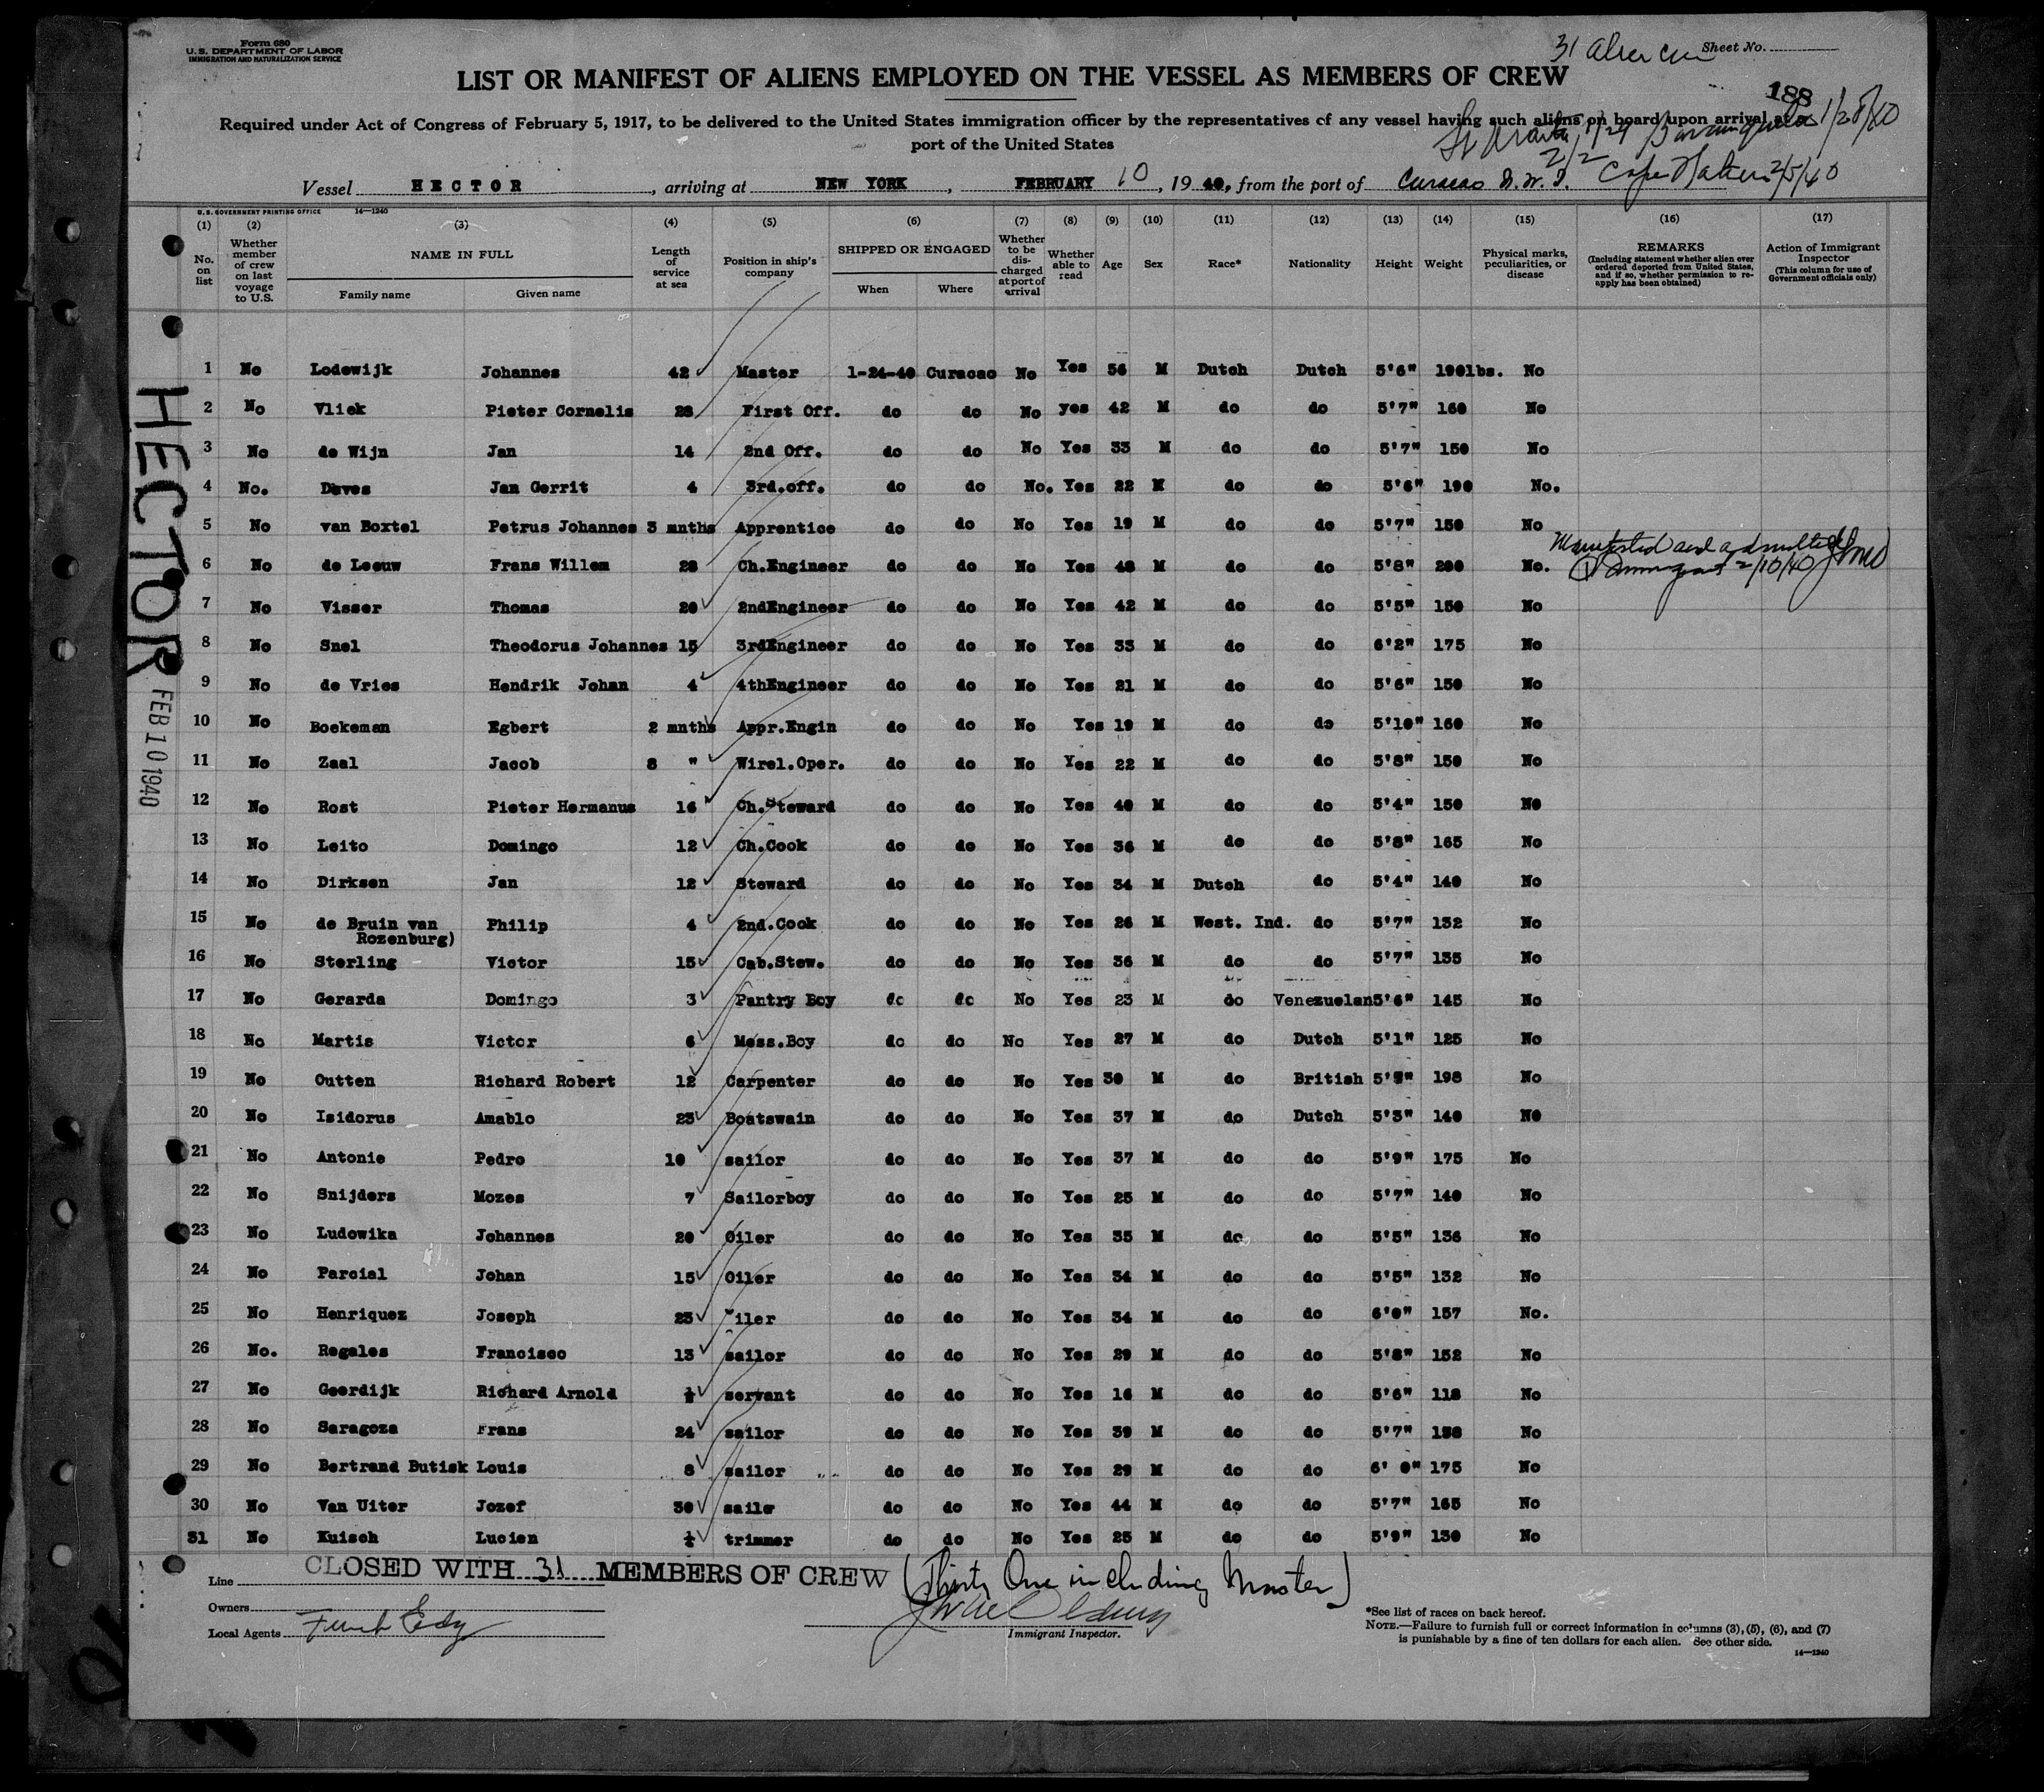 Form 680
U. S. DEPARTMENT OF LABOR
IMMIGRATION AND NATURALIZATION SERVICE
31 Sheet No.
LIST OR MANIFEST OF ALIENS EMPLOYED ON THE VESSEL AS MEMBERS OF CREW
188
Required under Act of Congress of February 5, 1917, to be delivered to the United States immigration officer by the representatives of any vessel having such aliens on board upon arrival at a
port of the United States
1/29 1/28/40
2/2
Vessel HECTOR, arriving at NEW YORK, FEBRUARY 10, 1940, from the port of Curacao N.W.I. 2/5/40
U. S. GOVERNMENT PRINTING OFFICE 14—1240
(1) (2) (3) (4) (5) (6) (7) (8) (9) (10) (11) (12) (13) (14) (15) (16) (17)
No. on list
Whether member of crew on last voyage to U.S.
NAME IN FULL
Family name Given name
Length of service at sea
Position in ship's company
SHIPPED OR ENGAGED
When Where
Whether to be discharged at port of arrival
Whether able to read
Age
Sex
Race*
Nationality
Height
Weight
Physical marks, peculiarities, or disease
REMARKS
(Including statement whether alien ever ordered deported from United States, and if so, whether permission to reapply has been obtained)
Action of Immigrant Inspector
(This column for use of Government officials only)
1 No Lodewijk Johannes 42 Master 1-24-40 Curacao No Yes 56 M Dutch Dutch 5'6" 190lbs. No
2 No Vliek Pieter Cornelis 28 First Off. do do No yes 42 M do do 5'7" 160 No
3 No de Wijn Jan 14 2nd Off. do do No Yes 33 M do do 5'7" 150 No
4 No. Jan Gerrit 4 3rd.off. do do No. Yes 22 M do do 5'6" 190 No.
5 No van Boxtel Petrus Johannes 3 mnths Apprentice do do No Yes 19 M do do 5'7" 150 No
6 No de Leeuw Frans Willem 28 Ch.Engineer do do No Yes 48 M do do 5'8" 200 No.
Manifested and admitted
2/10/40
7 No Visser Thomas 20 2ndEngineer do do No Yes 42 M do do 5'5" 150 No
8 No Snel Theodorus Johannes 15 3rdEngineer do do No Yes 33 M do do 6'2" 175 No
9 No de Vries Hendrik Johan 4 4thEngineer do do No Yes 21 M do do 5'6" 150 No
10 No Boekeman Egbert 2 mnths Appr.Engin do do No Yes 19 M do do 5'10" 160 No
11 No Zaal Jacob 8 " Wirel.Oper. do do No Yes 22 M do do 5'8" 150 No
12 No Rost Pieter Hermanus 16 Ch.Steward do do No Yes 40 M do do 5'4" 150 No
13 No Leito Domingo 12 Ch.Cook do do No Yes 36 M do do 5'8" 165 No
14 No Dirksen Jan 12 Steward do do No Yes 34 M Dutch do 5'4" 140 No
15 No de Bruin van Philip 4 2nd.Cook do do No Yes 26 M West. Ind. do 5'7" 132 No
Rozenburg)
16 No Sterling Victor 15 Cab.Stew. do do No Yes 36 M do do 5'7" 135 No
17 No Gerarda Domingo 3 Pantry Boy do do No Yes 23 M do Venezuelan 5'6" 145 No
18 No Martis Victor 6 Mess.Boy do do No Yes 27 M do Dutch 5'1" 125 No
19 No Outten Richard Robert 12 Carpenter do do No Yes 30 M do British 198 No
20 No Isidorus Amablo 23 Boatswain do do No Yes 37 M do Dutch 5'3" 140 No
21 No Antonie Pedro 10 sailor do do No Yes 37 M do do 5'9" 175 No
22 No Snijders Mozes 7 Sailorboy do do No Yes 25 M do do 5'7" 140 No
23 No Ludowika Johannes 20 Oiler do do No Yes 35 M do do 5'5" 136 No
24 No Parcial Johan 15 Oiler do do No Yes 34 M do do 5'5" 132 No
25 No Henriquez Joseph 23 Oiler do do No Yes 34 M do do 6'0" 157 No.
26 No. Regales Francisco 13 sailor do do No Yes 29 M do do 5'8" 152 No
27 No Geerdijk Richard Arnold servant do do No Yes 16 M do do 5'6" 118 No
28 No Saragoza Frans 24 sailor do do No Yes 39 M do do 5'7" 158 No
29 No Bertrand Butisk Louis 8 sailor do do No Yes 29 M do do 6' 0" 175 No
30 No Van Uiter Jozef 30 sailr do do No Yes 44 M do do 5'7" 165 No
31 No Kuisch Lucien trimmer do do No Yes 25 M do do 5'9" 130 No
CLOSED WITH 31 MEMBERS OF CREW (Thirty One including Master)
Line
Owners
Local Agents Funch Edy
Immigrant Inspector.
*See list of races on back hereof.
NOTE.—Failure to furnish full or correct information in columns (3), (5), (6), and (7)
is punishable by a fine of ten dollars for each alien. See other side.
14—1240
HECTOR
FEB 10 1940